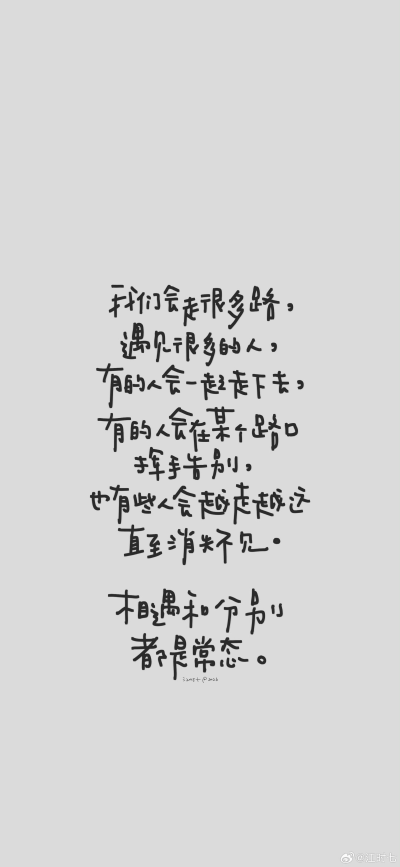 我们会走很多路，
遇见很多的人，
有的人会一起走下去，
有的人会在某个路口
挥手告别，
也有些人会越走越远
直至消失不见。
相遇和分别
都是常态。